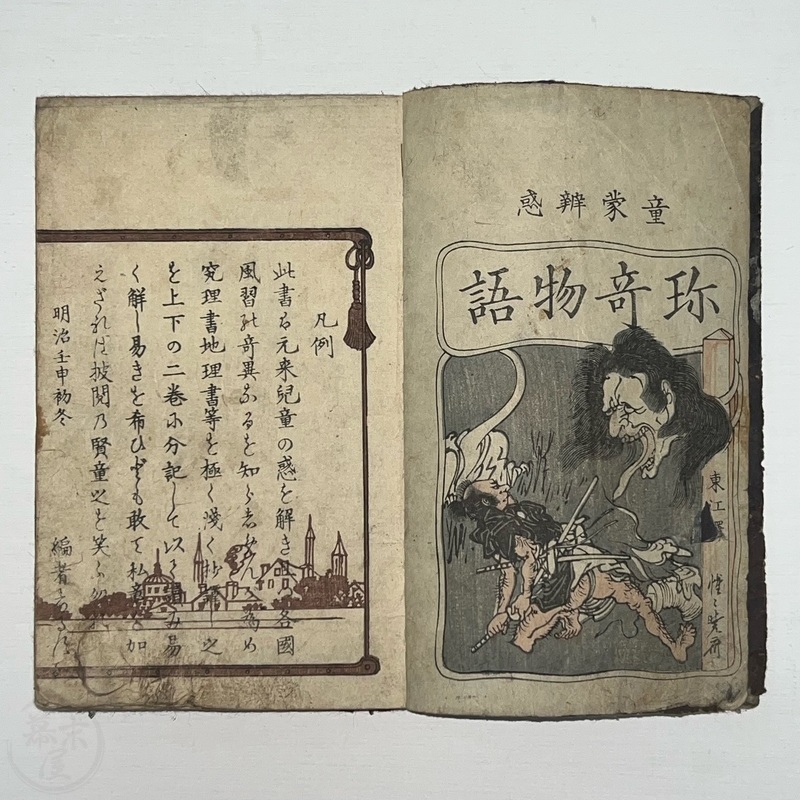 童蒙辨惑
珎奇物語
東江譯
惺々暁斎
凡例
此書は元来兒童の惑を解き 各國
風習の奇異なるを知ら 為め
究理書地理書等を極く淺く抄譯し之
を上下の二巻に分記して以て讀み易
く解し易きを希ひ ども敢て私意を加
えざれば披閲乃賢童之を笑ふ
明治壬申初冬
編者しるす